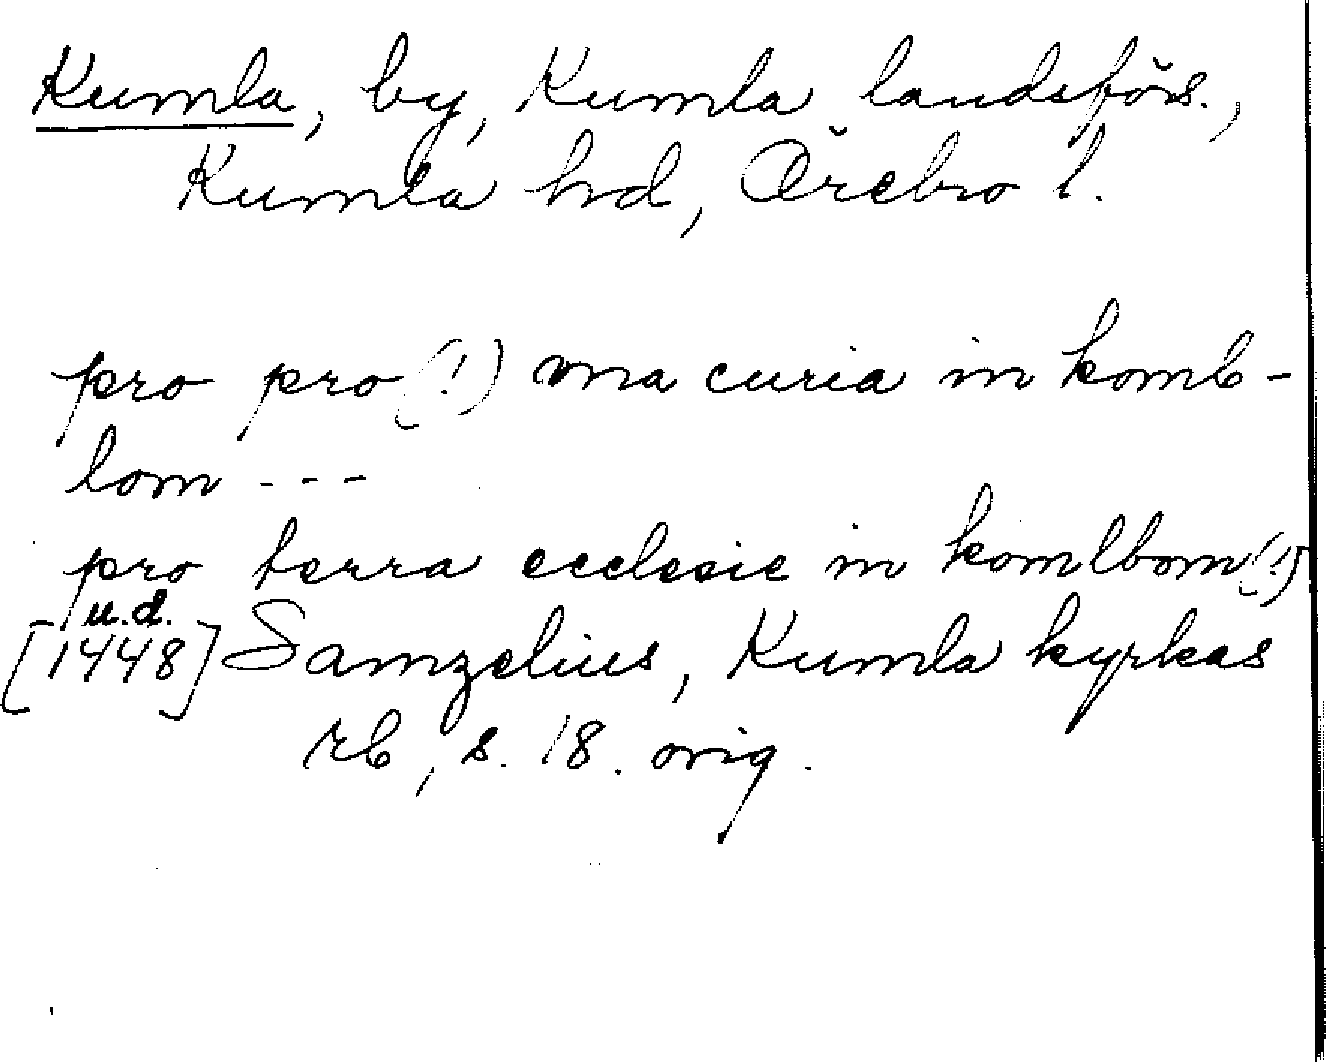 Kumla, by, Kumla landsförs.,
Kumla hd, Örebro l.
pro pro (!) vna curia in komb-
lom ---
pro terra ecclesie in komlbom (!)
u.d.
[1448] Samzelius, Kumla kyrkas
rb, s. 18. orig.